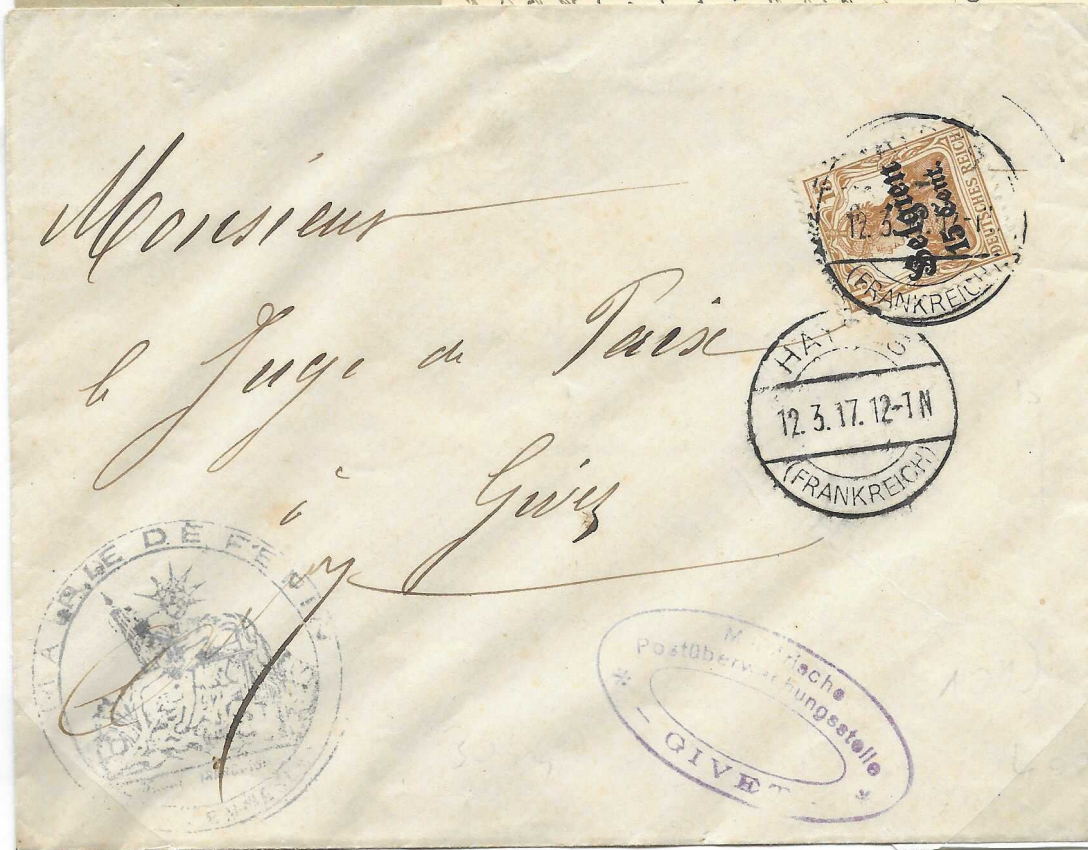 Monsieur
le Juge de Paix
à Givet
DEUTSCHES REICH
Belgien
15 Cent.
12.3.
(FRANKREICH)
HAY
12.3.17.12-1N
(FRANKREICH)
VILLE DE
Militärische
Postüberwachungsstelle
* GIVET *